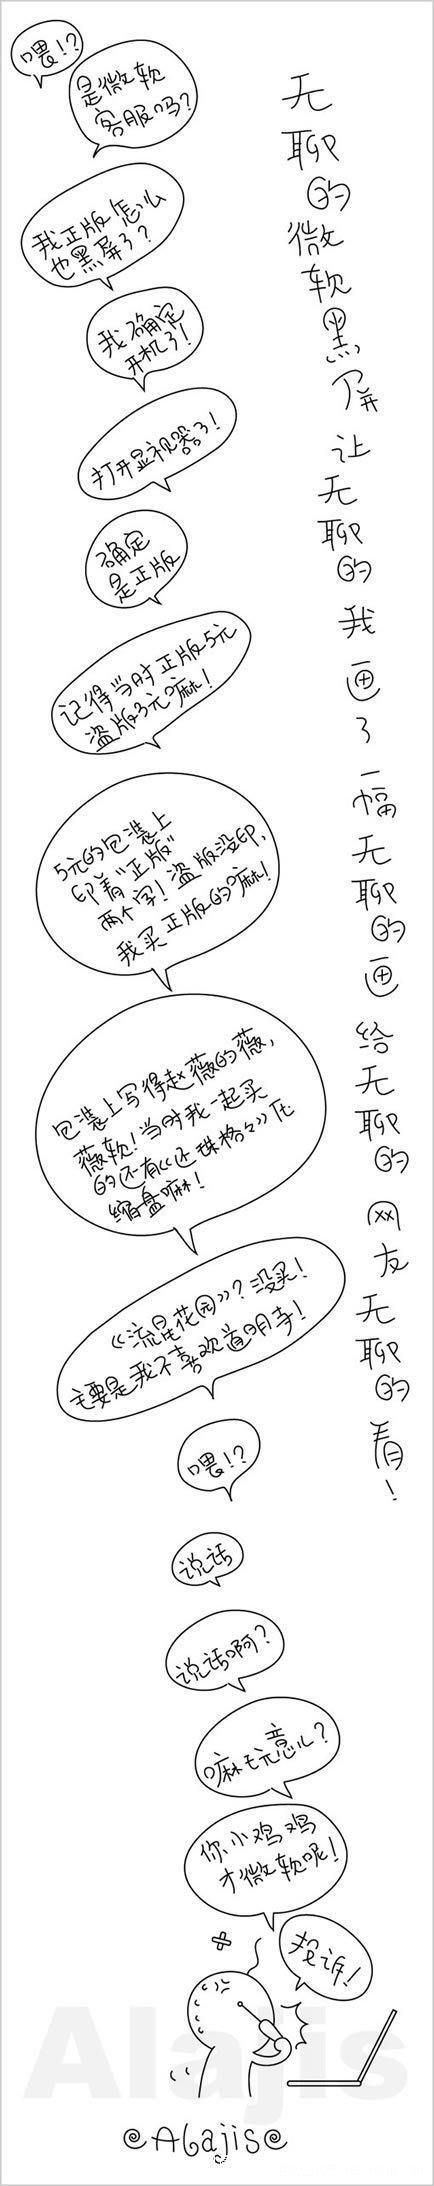 喂！?
是微软
客服吗？
我正版怎么
也黑屏了？
我确定
开机了！
打开显视器了！
确定
是正版
记得当时正版5元
盗版3元嘛！
5元的包装上
印着“正版”
两个字！盗版没印，
我买正版的嘛！
包装上写得赵薇的薇，
薇软！当时我一起买
的还有《还珠格格》压
缩盘嘛！
《流星花园》？没买！
主要是我不喜欢道明寺！
喂！?
说话
说话啊？
嘛玩意儿？
你小鸡鸡
才微软呢！
投诉！
无聊的微软黑屏让无聊的我画了一幅无聊的画给无聊的网友无聊的看！
Alajis
@Alajis@